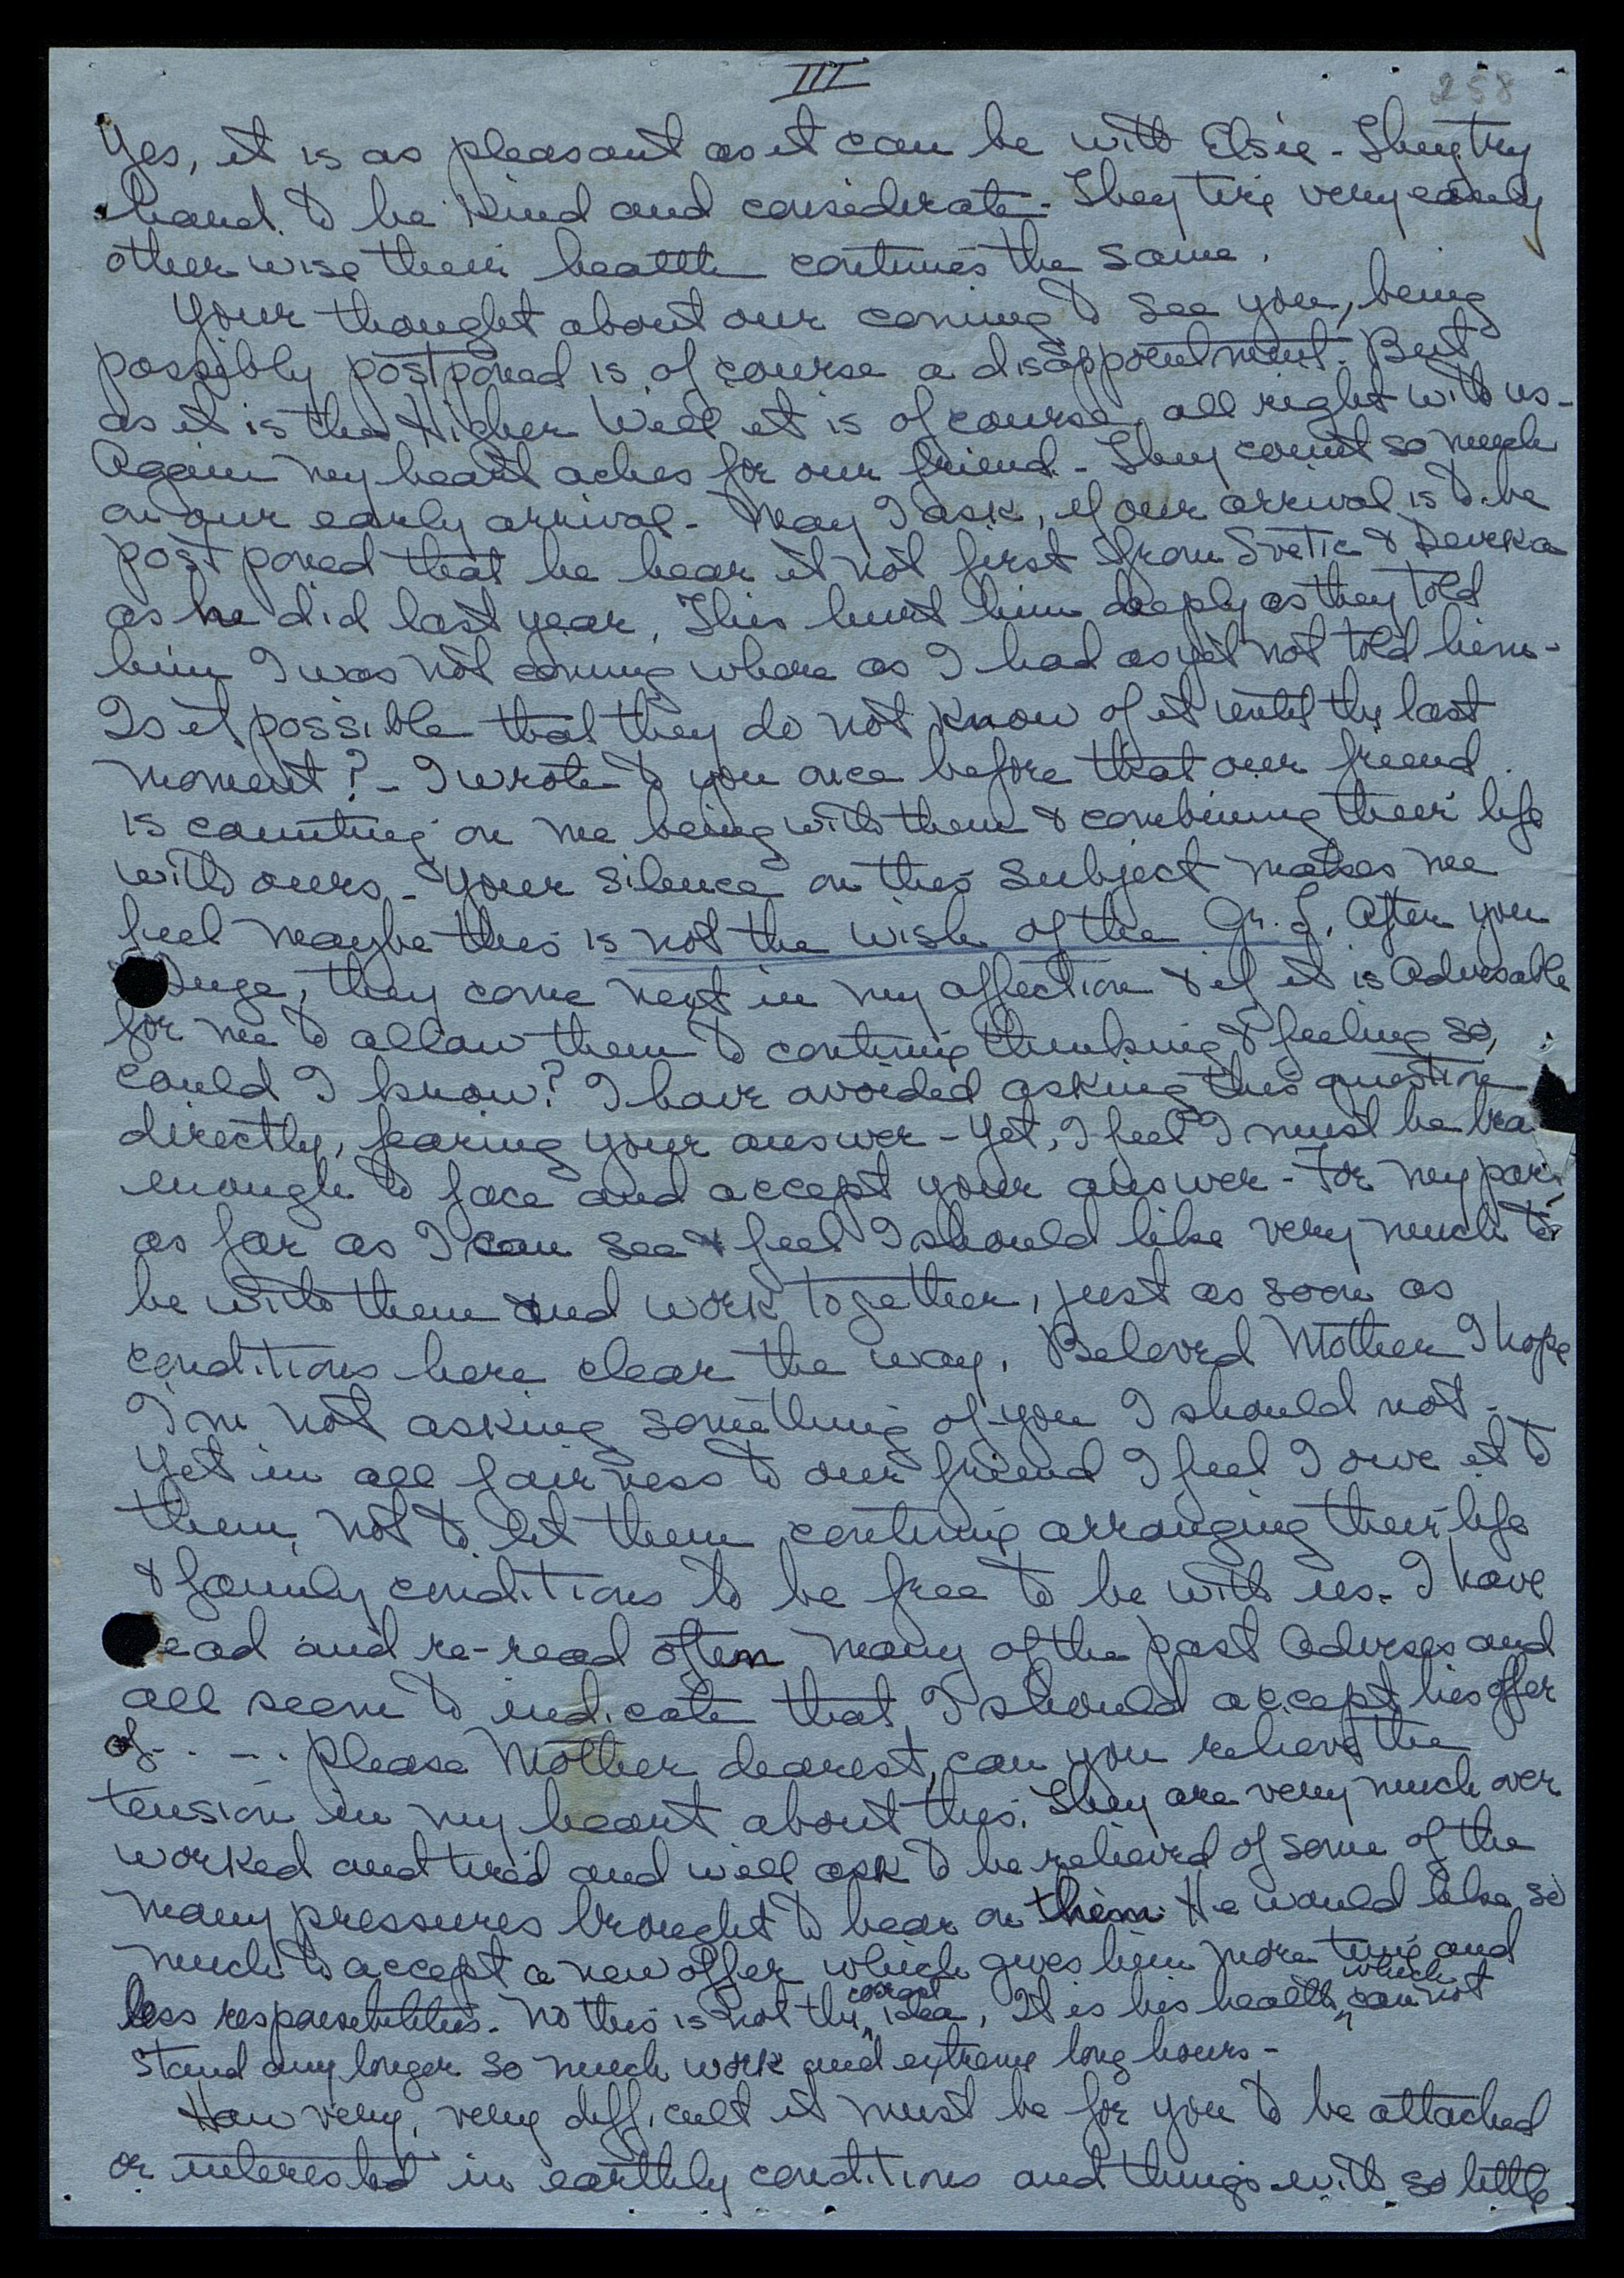 III
258
Yes, it is as pleasant as it can be with Elsie - They try
hard to be kind and considerate - They tire very easely
other wise their health continues the same.
Your thought about our coming to see you, being
possibly postponed is of course a disappointment. But
as it is the Higher Will it is of course, all right with us -
Again my heart aches for our friend - They count so much
on our early arrival - May I ask, if our arrival is to be
post poned that he hear it not first from Svetic & Devika
as he did last year. This hurt him deeply as they told
him I was not coming where as I had as yet not told him -
Is it possible that they do not know of it until the last
moment? - I wrote to you once before that our friend
is counting on me being with them & combining their life
with ours - Your silence on this subject makes me
feel maybe this is not the wish of the Gr. L. After you
they come next in my affection & if it is advisable
for me to allow them to continue thinking & feeling so,
could I know? I have avoided asking this question
directly, fearing your answer - Yet, I feel I must be bra
enough to face and accept your answer - For my part
as far as I can see & feel I should like very much to
be with them and work together, just as soon as
conditions here clear the way. Beloved Mother I hope
I'm not asking something of you I should not -
Yet in all fairness to our friend I feel I owe it to
them, not to let them continue arranging their life
& family conditions to be free to be with us. I have
ead and re-read often many of the past Advises and
all seem to indicate that I should accept his offer
of . . - . . Please Mother dearest, can you relieve the
tension in my heart about this. They are very much over
worked and tired and will ask to be relieved of some of the
many pressures brought to bear on them. He would like so
much to accept a new offer which gives him more time and
less responsebilities. No this is not the correct idea, It is his health which can not
stand any longer so much work and extreme long hours -
How very, very difficult it must be for you to be attached
or interested in earthly conditions and things with so little